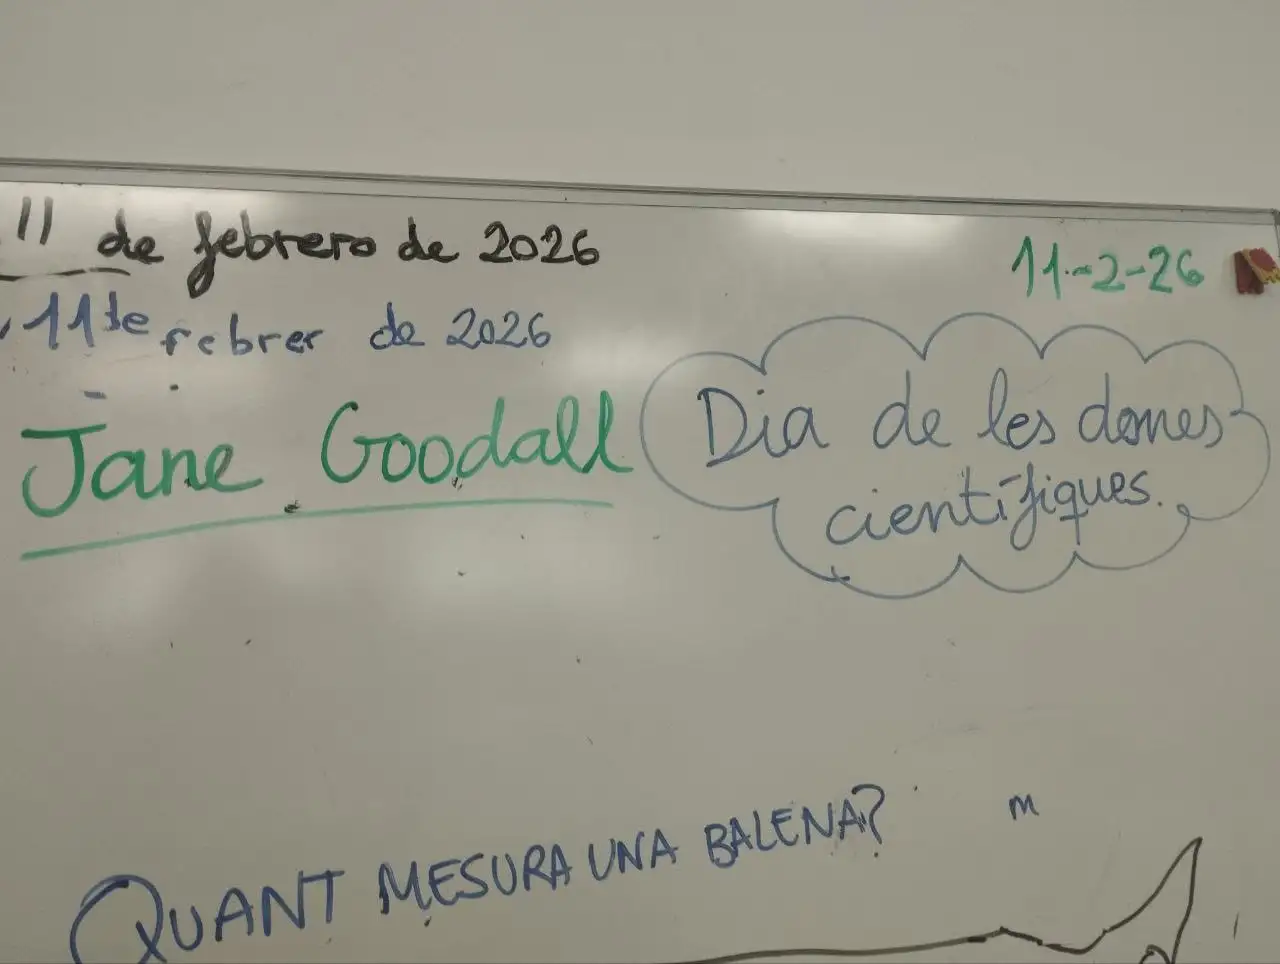 11 de febrero de 2026
11 de febrer de 2026
11-2-26
Jane Goodall
Dia de les dones
científiques.
QUANT MESURA UNA BALENA?
m